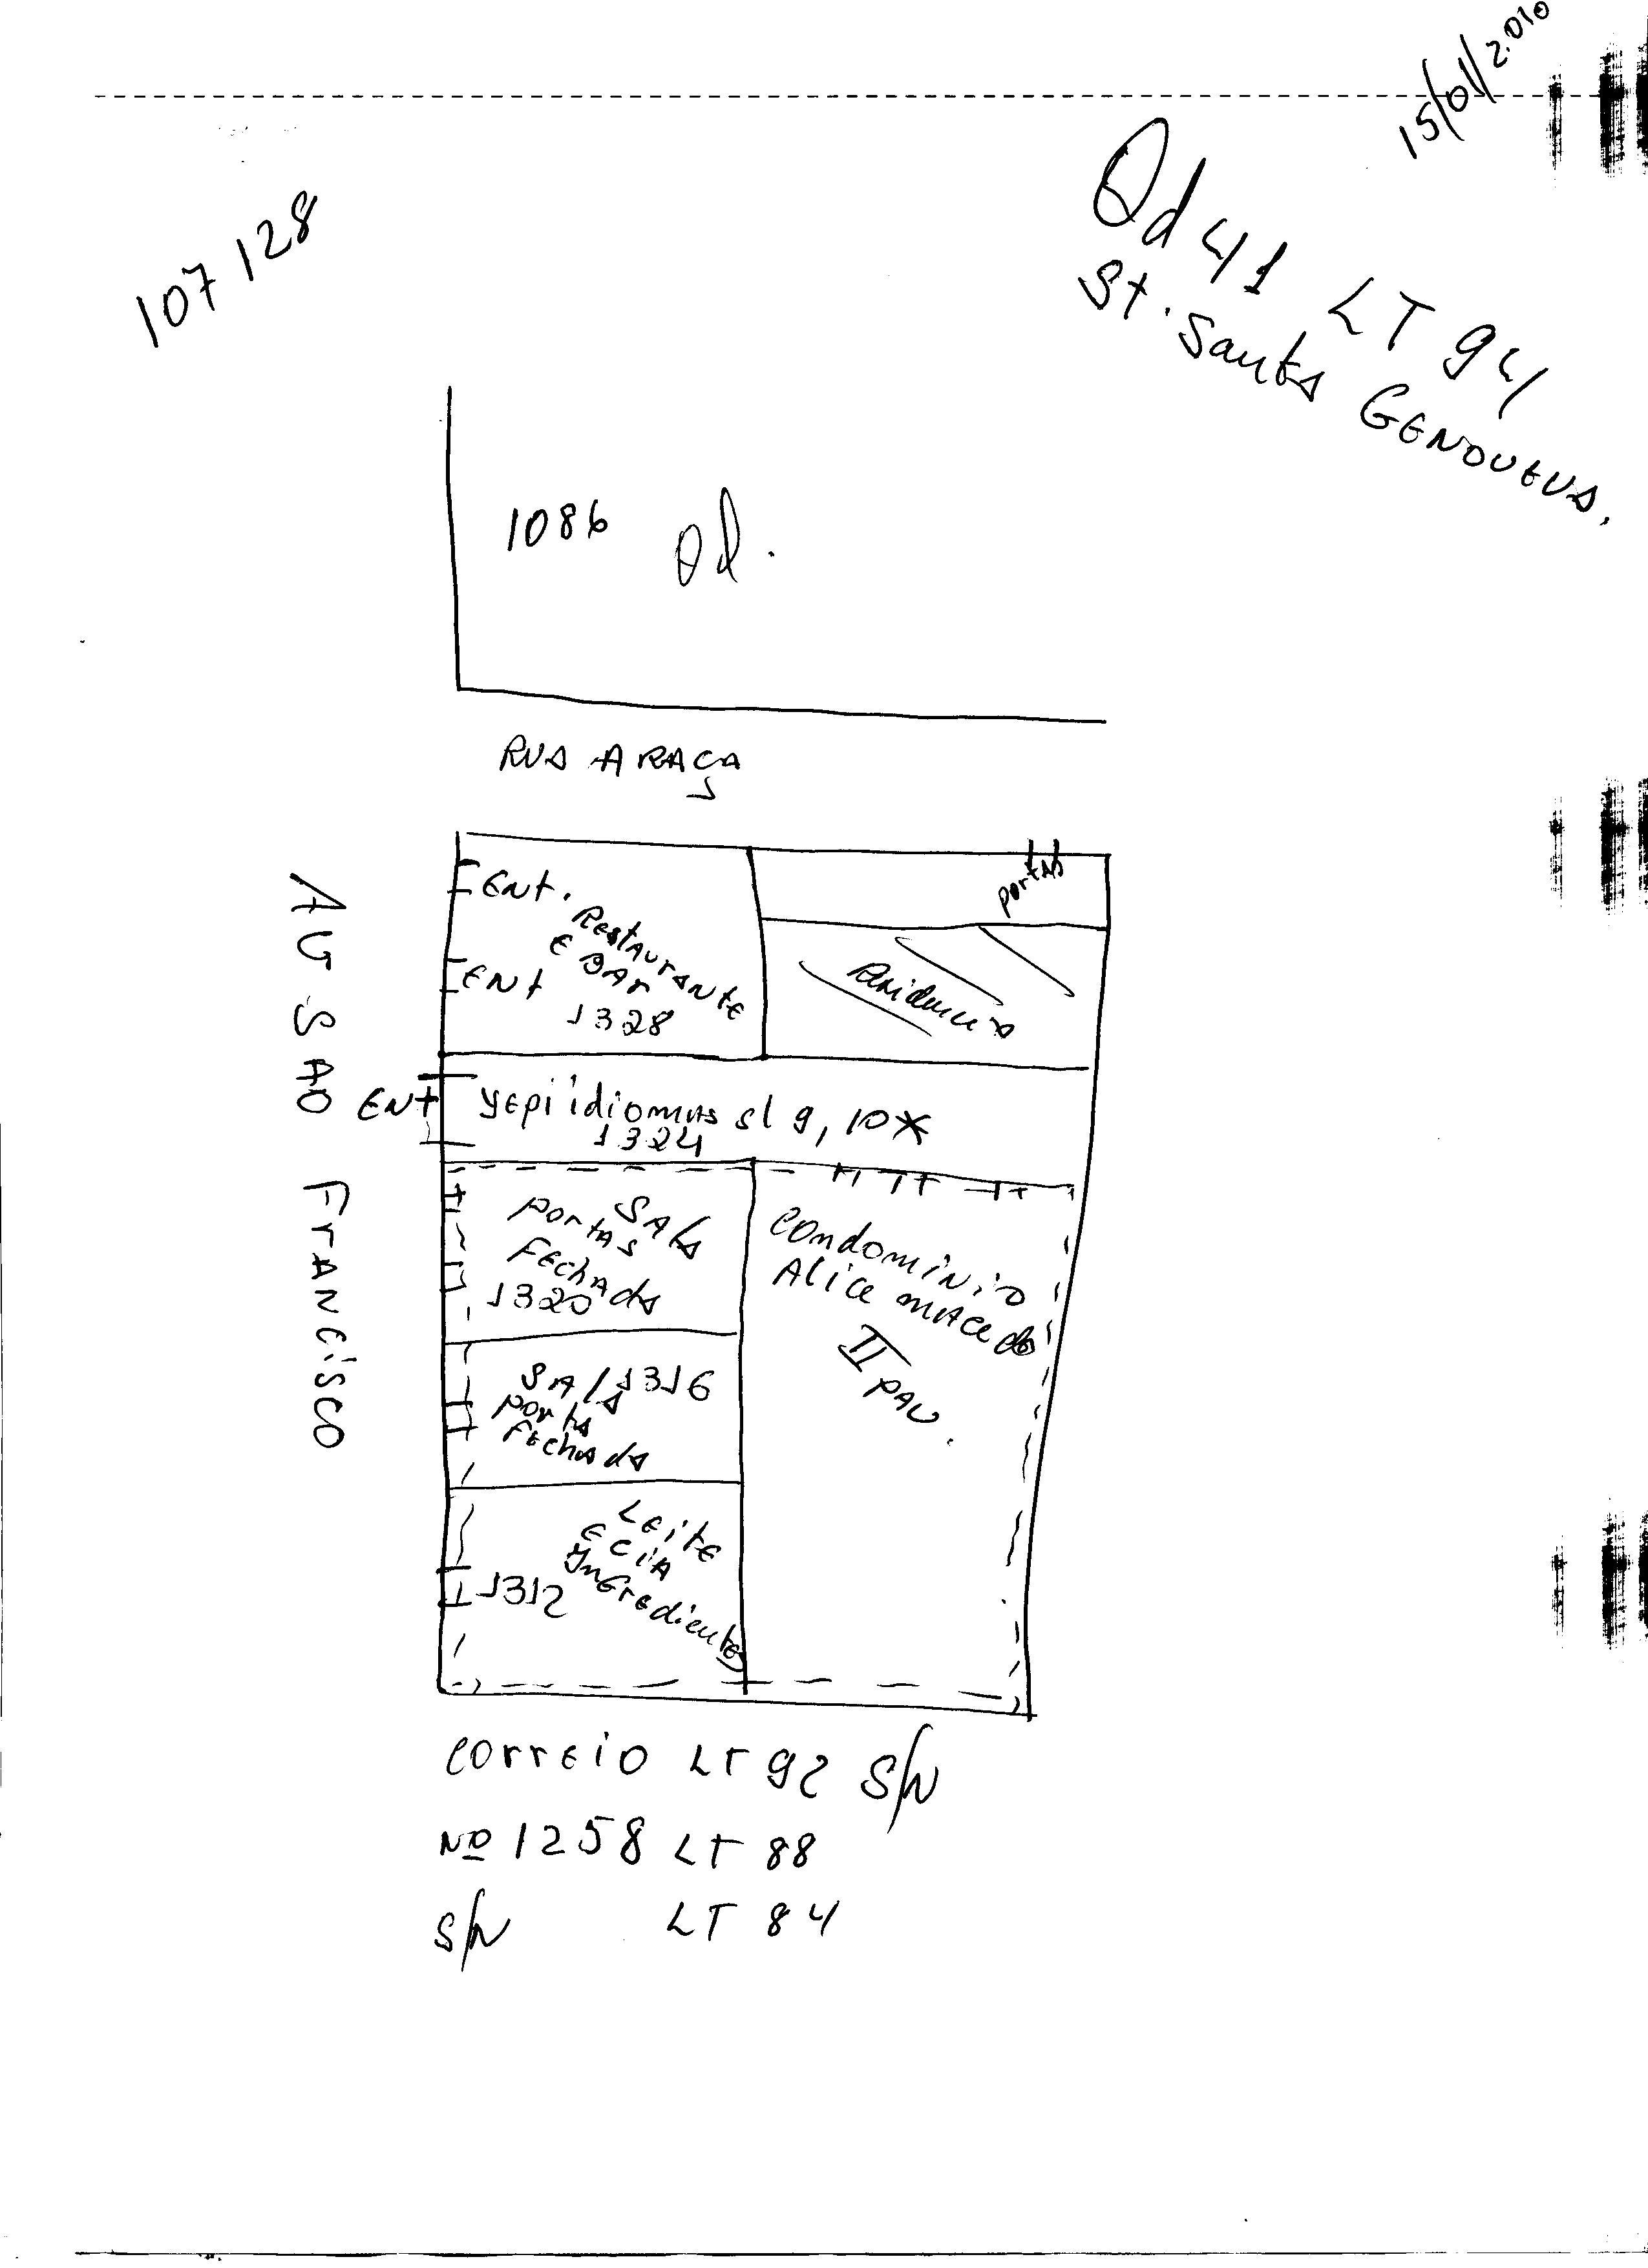 15/01/2.010
107128
Qd 41 LT 94
St. Santa GENOVEVA.
1086 Qd.
RUA ARAÇA
AV SAO FRANCISCO
ENt.
Restaurante
E BAr
ENt
1328
portas
Residencia
ENt
yepi idiomas sl 9, 10*
1324
SAla
portas
FEchAda
1320
SAla 1316
porta
FEchada
LEitE
E CIA
INGredientes
1312
CONdomíNio
Alice mACedo
II PAV.
correio LT 92 S/N
Nº 1258 LT 88
S/N LT 84